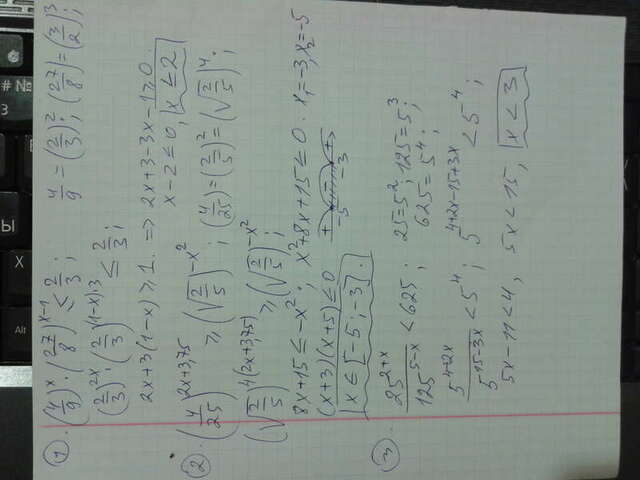 1) (4/9)^x · (27/8)^(x-1) ≤ 2/3; 4/9 = (2/3)^2; (27/8) = (3/2)^3;
(2/3)^(2x) · (2/3)^((1-x)·3) ≤ 2/3;
2x+3(1-x) ≥ 1. => 2x+3-3x-1 ≥ 0.
x-2 ≤ 0, x ≤ 2
2) (4/25)^(2x+3,75) ≥ (√(2/5))^(-x^2); (4/25) = (2/5)^2 = (√(2/5))^4;
(√(2/5))^(4(2x+3,75)) ≥ (√(2/5))^(-x^2);
8x+15 ≤ -x^2; x^2+8x+15 ≤ 0. x_1=-3, x_2=-5
(x+3)(x+5) ≤ 0
+ - +
-5 -3
x ∈ [-5; -3].
3) 25^(2+x) / 125^(5-x) < 625; 25=5^2; 125=5^3
625=5^4;
5^(4+2x) / 5^(15-3x) < 5^4; 5^(4+2x-15+3x) < 5^4;
5x-11 < 4, 5x < 15, x < 3
Alt
X
Ы
№
#
3